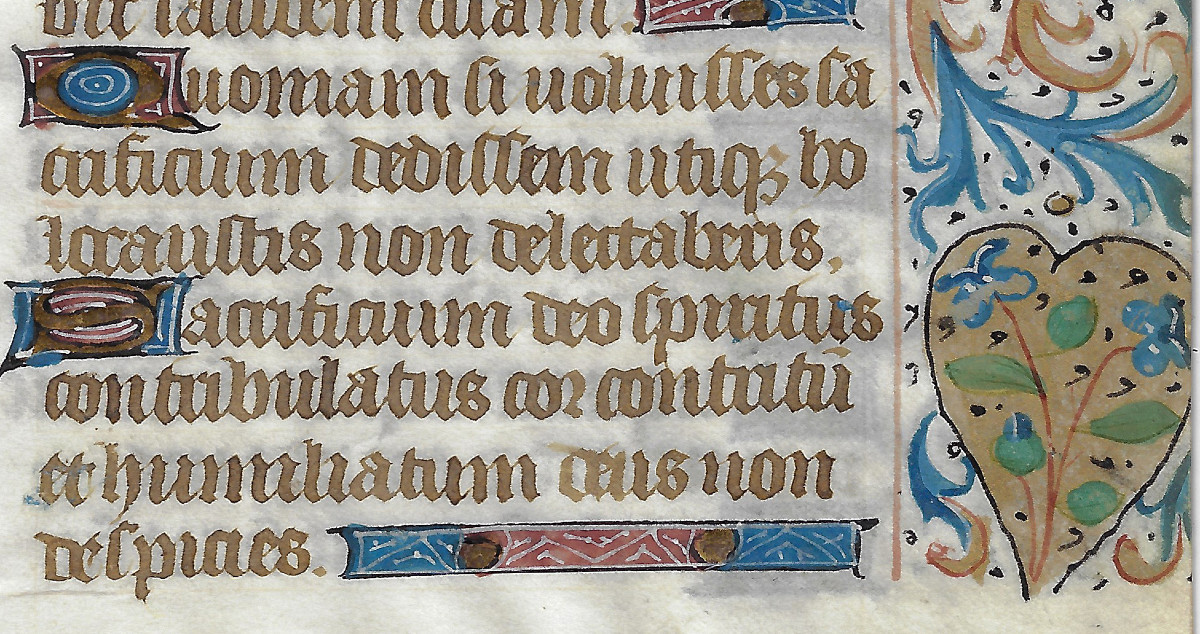 bit laudem tuam.
Quoniam si uoluisses sa
crificium dedissem utiqꝫ ho
locaustis non delectaberis.
Sacrificium deo spiritus
contribulatus cor contritū
et humiliatum deus non
despicies.